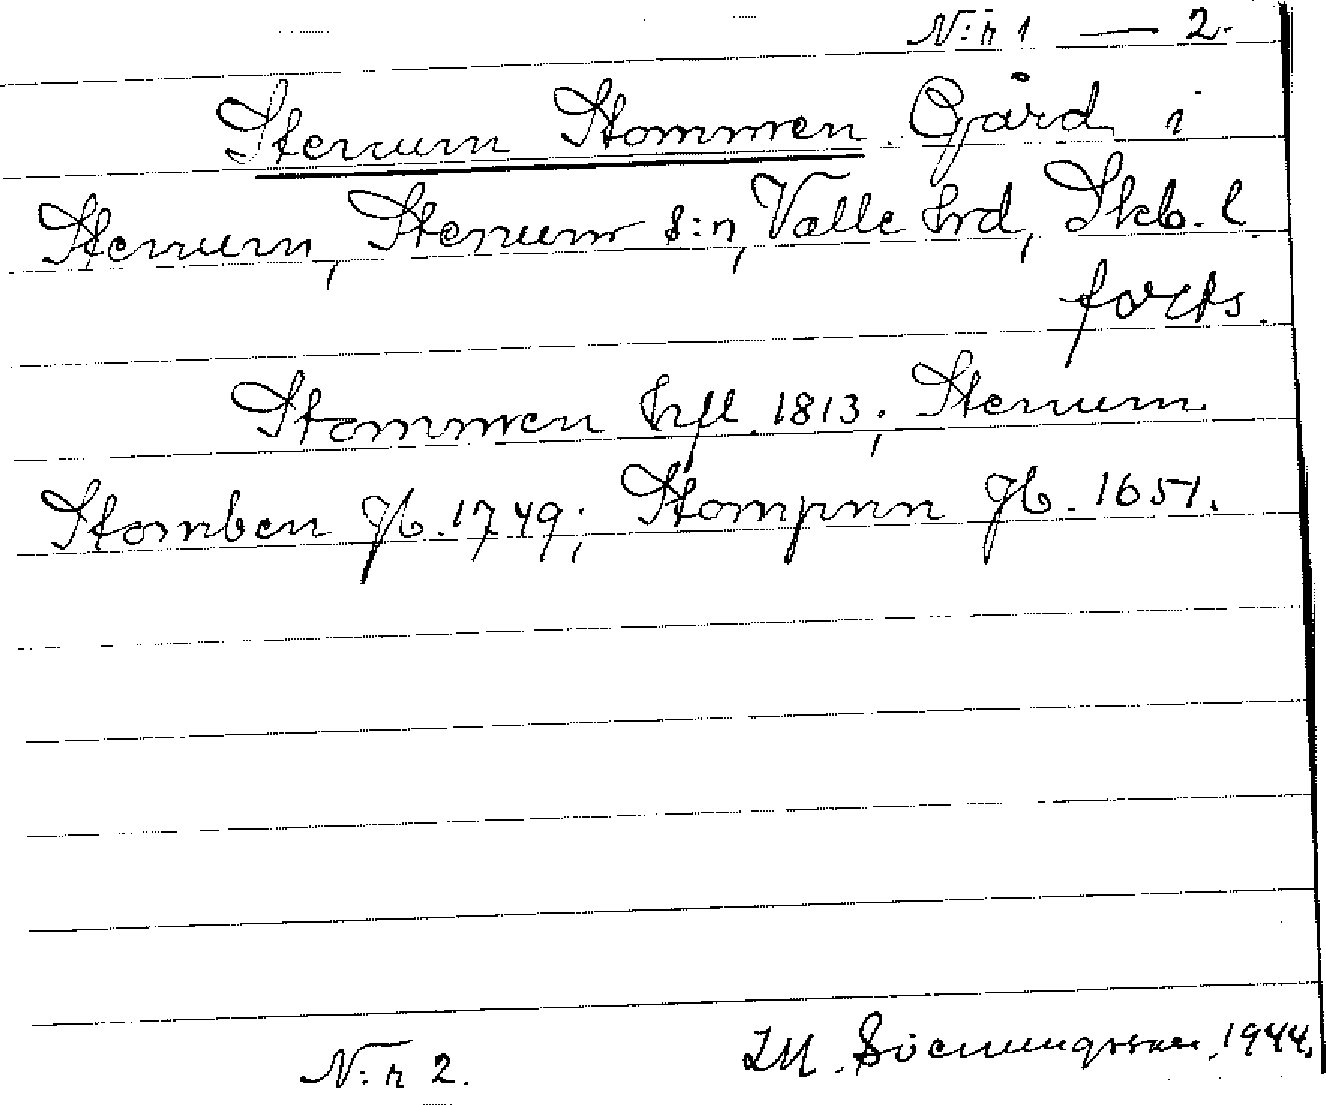 N:r 1 — 2.
Stenum Stommen. Gård i
Stenum, Stenum s:n, Valle hrd, Skb. l.
forts.
Stommen hfl. 1813; Stenum
Stomben jb. 1749; Stompnn jb. 1651.
N:r 2. 1944.